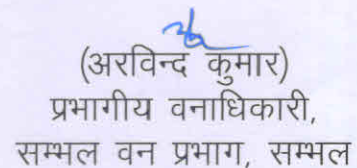 (अरविन्द कुमार)
प्रभागीय वनाधिकारी,
सम्भल वन प्रभाग, सम्भल